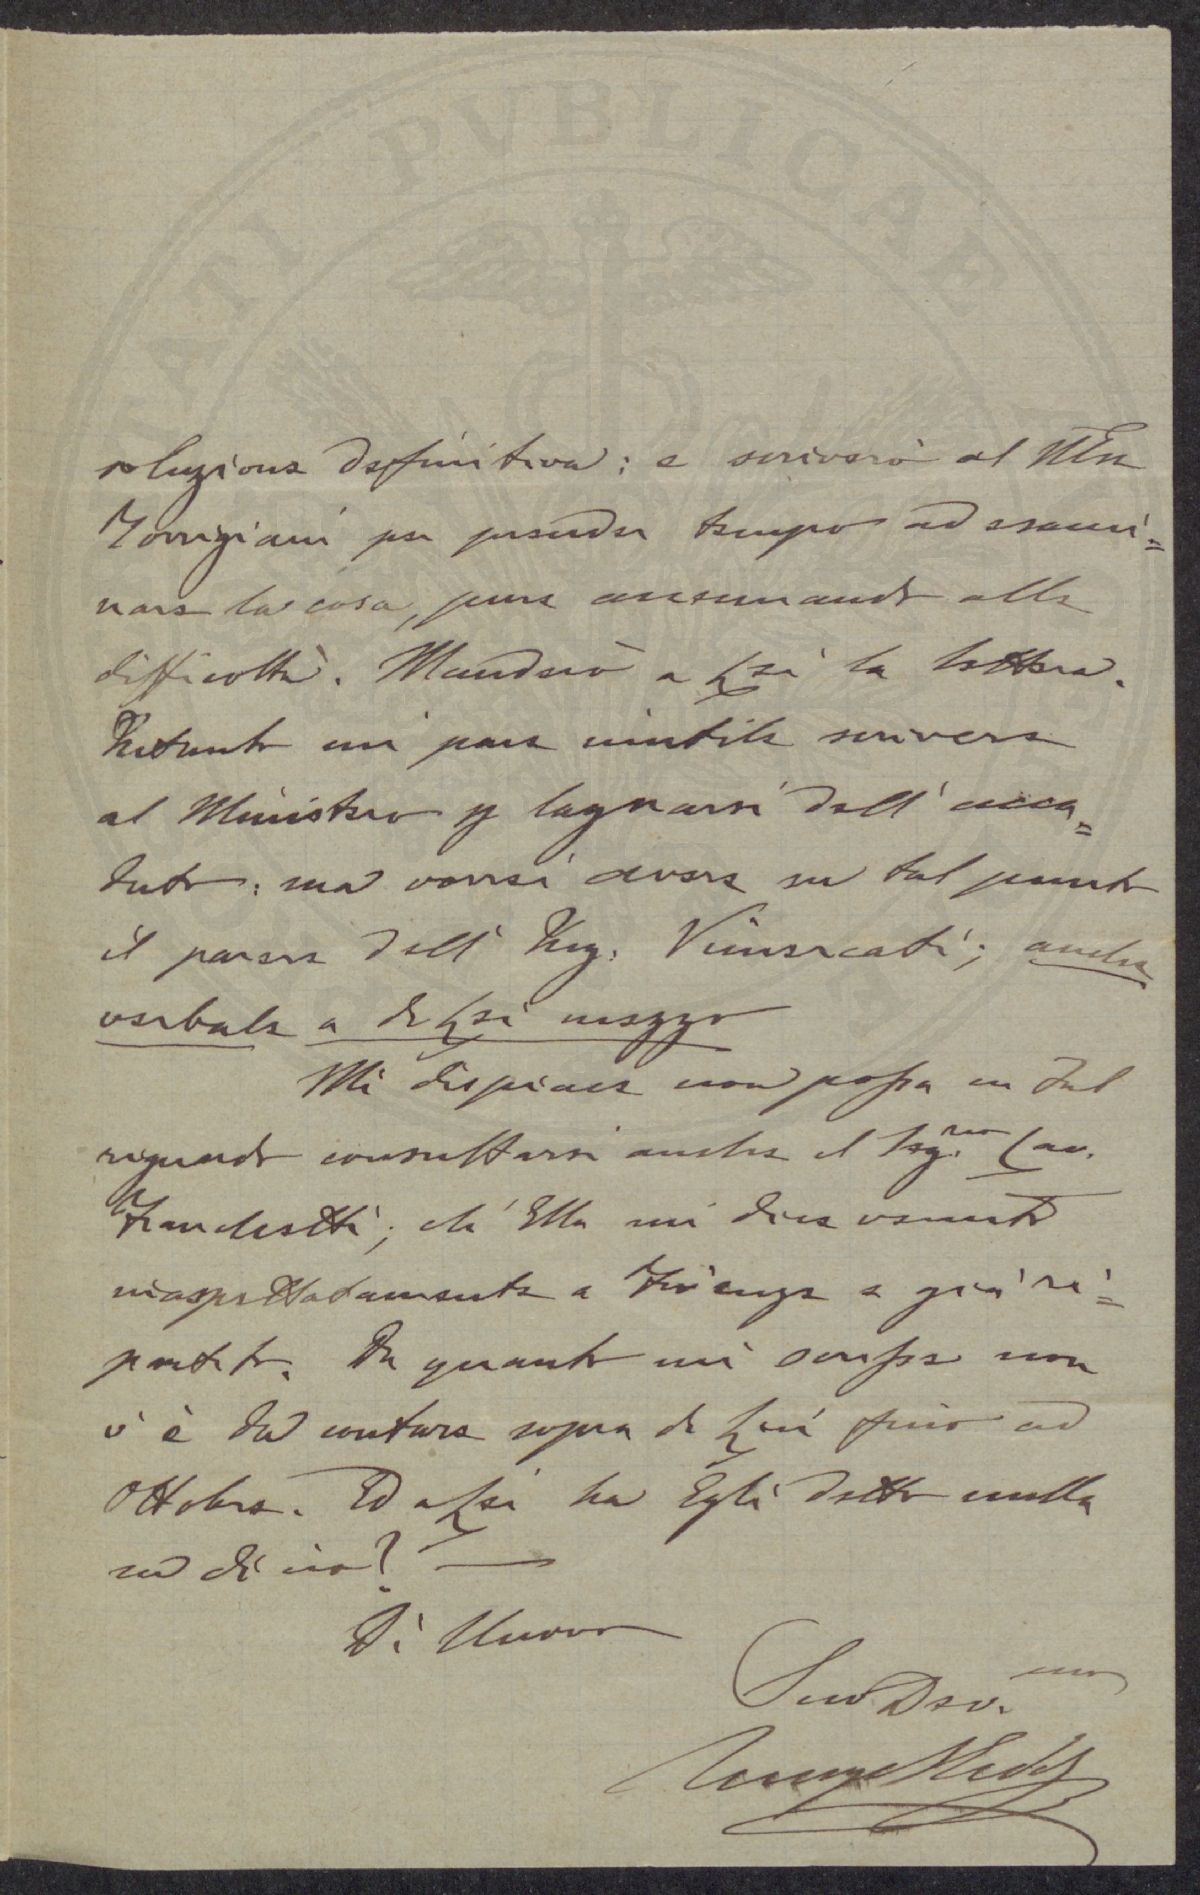 PVBLICAE
soluzione definitiva: e scriverò al
Torrigiani per prender tempo ad esami=
nare la cosa, pure accennando alle
difficoltà. Manderò a Lei la lettera.
Intanto mi pare inutile scrivere
al Ministero p lagnarsi dell'acca=
duto: ma vorrei avere su tal punto
il parere dell'Ing. Vimercati; anche
verbale a di Lei mezzo
Mi dispiace non possa in tal
riguardo consultarsi anche il Sig.re Cav.
Franchetti; chè Ella mi dice venuto
inaspettatamente a Firenze e già ri=
partito. Da quanto mi scrisse non
v'è da contare sopra di Lui fino ad
Ottobre. Ed a Lei ha Egli detto nulla
su di ciò? —
Di Nuovo
Suo Dev.mo